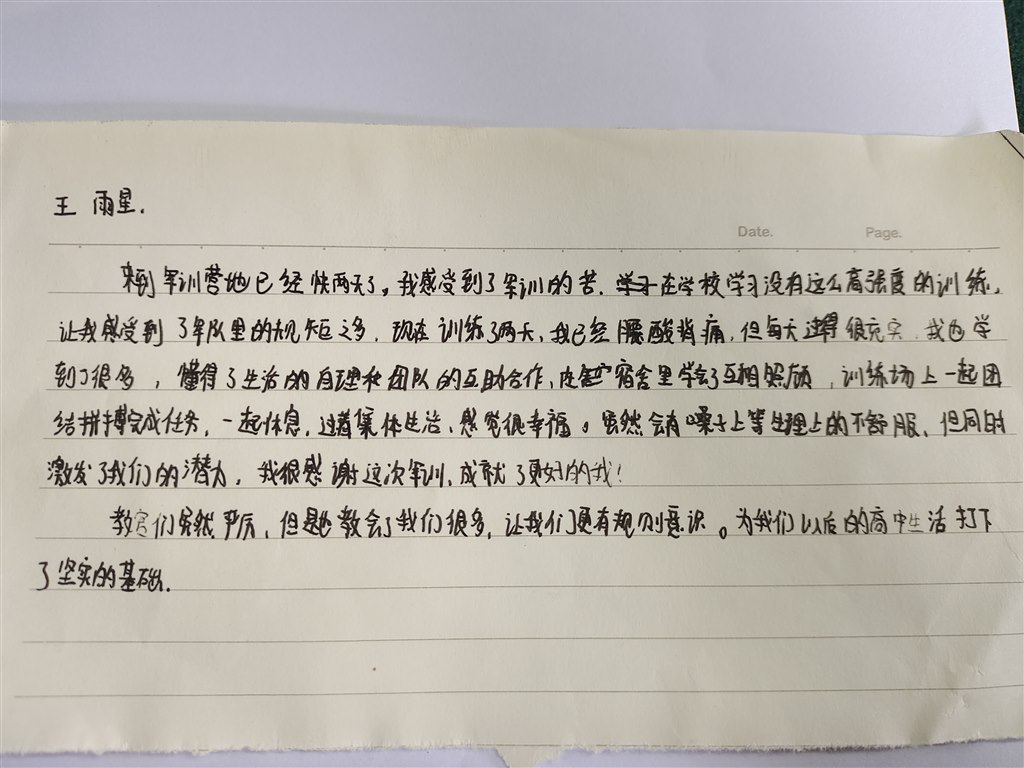 王雨星.
Date. Page.
来到军训营地已经快两天了，我感受到了军训的苦.在学校学习没有这么高强度的训练，
让我感受到了军队里的规矩之多.现在训练了两天，我已经腰酸背痛，但每天过得很充实.我也学
到了很多，懂得了生活的自理和团队的互助合作，在宿舍里学会了互相照顾，训练场上一起团
结拼搏完成任务，一起休息，过着集体生活、感觉很幸福。虽然会有嗓子上等生理上的不舒服、但同时
激发了我们的潜力，我很感谢这次军训、成就了更好的我！
教官们虽然严厉，但是也教会了我们很多，让我们更有规则意识。为我们以后的高中生活打下
了坚实的基础.